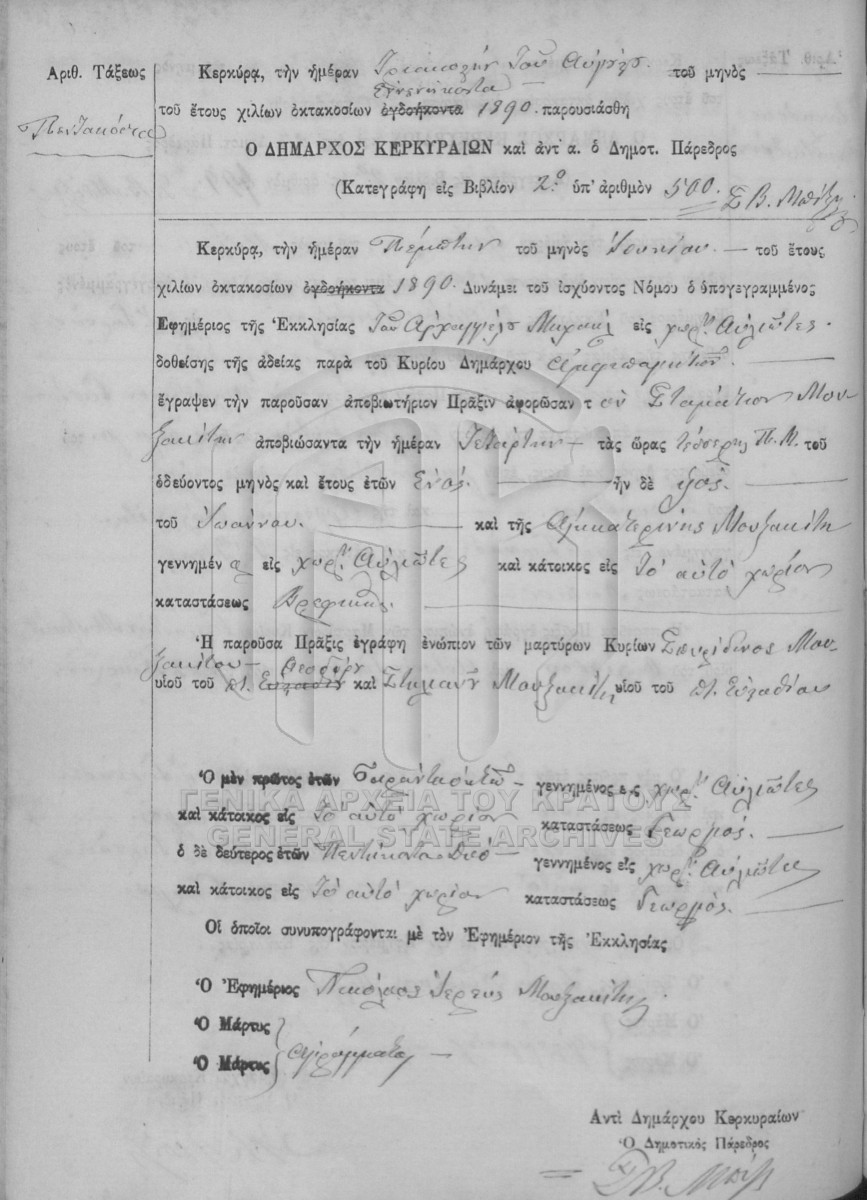 Ἀριθ. Τάξεως
Πεντακόσια
Κερκύρᾳ, τὴν ἡμέραν Τριακοστὴν τοῦ Αὐγούστ. τοῦ μηνὸς
Ἐννενήκοντα
τοῦ ἔτους χιλίων ὀκτακοσίων ὀγδοήκοντα 1890 παρουσιάσθη
Ὁ ΔΗΜΑΡΧΟΣ ΚΕΡΚΥΡΑΙΩΝ καὶ ἀντ' α. ὁ Δημοτ. Πάρεδρος
(Κατεγράφη εἰς Βιβλίον 2.ο ὑπ' ἀριθμὸν 500
Σ Β. Μπ
Κερκύρᾳ, τὴν ἡμέραν Πέμπτην τοῦ μηνὸς Ἰουνίου. τοῦ ἔτους
χιλίων ὀκτακοσίων ὀγδοήκοντα 1890. Δυνάμει τοῦ ἰσχύοντος Νόμου ὁ ὑπογεγραμμένος
Ἐφημέριος τῆς Ἐκκλησίας Τοῦ Ἀρχαγγέλου Μιχαὴλ εἰς χωρ. Αὐλιῶτες.
δοθείσης τῆς ἀδείας παρὰ τοῦ Κυρίου Δημάρχου
ἔγραψεν τὴν παροῦσαν ἀποβιωτήριον Πρᾶξιν ἀφορῶσαν τ ὸν Σταμάτιον Μου-
ζακίτην ἀποβιώσαντα τὴν ἡμέραν Τετάρτην τὰς ὥρας τέσσερης Π. Μ. τοῦ
ὁδεύοντος μηνὸς καὶ ἔτους ἐτῶν Ἑνός. ἦν δὲ υἱός.
τοῦ Ἰωάννου. καὶ τῆς Αἰκατερίνης Μουζακίτη
γεννημέν ος εἰς χωρ. Αὐλιῶτες καὶ κάτοικος εἰς Τὸ αὐτὸ χωρίον
καταστάσεως Βρεφικῆς.
Ἡ παροῦσα Πρᾶξις ἐγράφη ἐνώπιον τῶν μαρτύρων Κυρίων Σπυρίδωνος Μου-
ζακίτου Θεοδώρου
υἱοῦ τοῦ π. καὶ Στυλιανοῦ Μουζακίτη υἱοῦ τοῦ π. Εὐσταθίου
Ὁ μὲν πρῶτος ἐτῶν Σαραντα ὀκτὼ γεννημένος εις χωρ. Αὐλιῶτες
καὶ κάτοικος εἰς Τὸ αὐτὸ χωρίον καταστάσεως Γεωργός.
ΓΕΝΙΚΑ ΑΡΧΕΙΑ ΤΟΥ ΚΡΑΤΟΥΣ
GENERAL STATE ARCHIVES
ὁ δὲ δεύτερος ἐτῶν Πεντήκοντα Δυό γεννημένος εἰς χωρ. Αὐλιῶτες
καὶ κάτοικος εἰς Τὸ αὐτὸ χωρίον καταστάσεως Γεωργός.
Οἱ ὁποῖοι συνυπογράφονται μὲ τὸν Ἐφημέριον τῆς Ἐκκλησίας
Ὁ Ἐφημέριος Νικόλαος Ἱερεύς Μουζακίτης
Ὁ Μάρτυς
Ὁ Μάρτυς ἀγράμματοι
Ἀντὶ Δημάρχου Κερκυραίων
Ὁ Δημοτικὸς Πάρεδρος